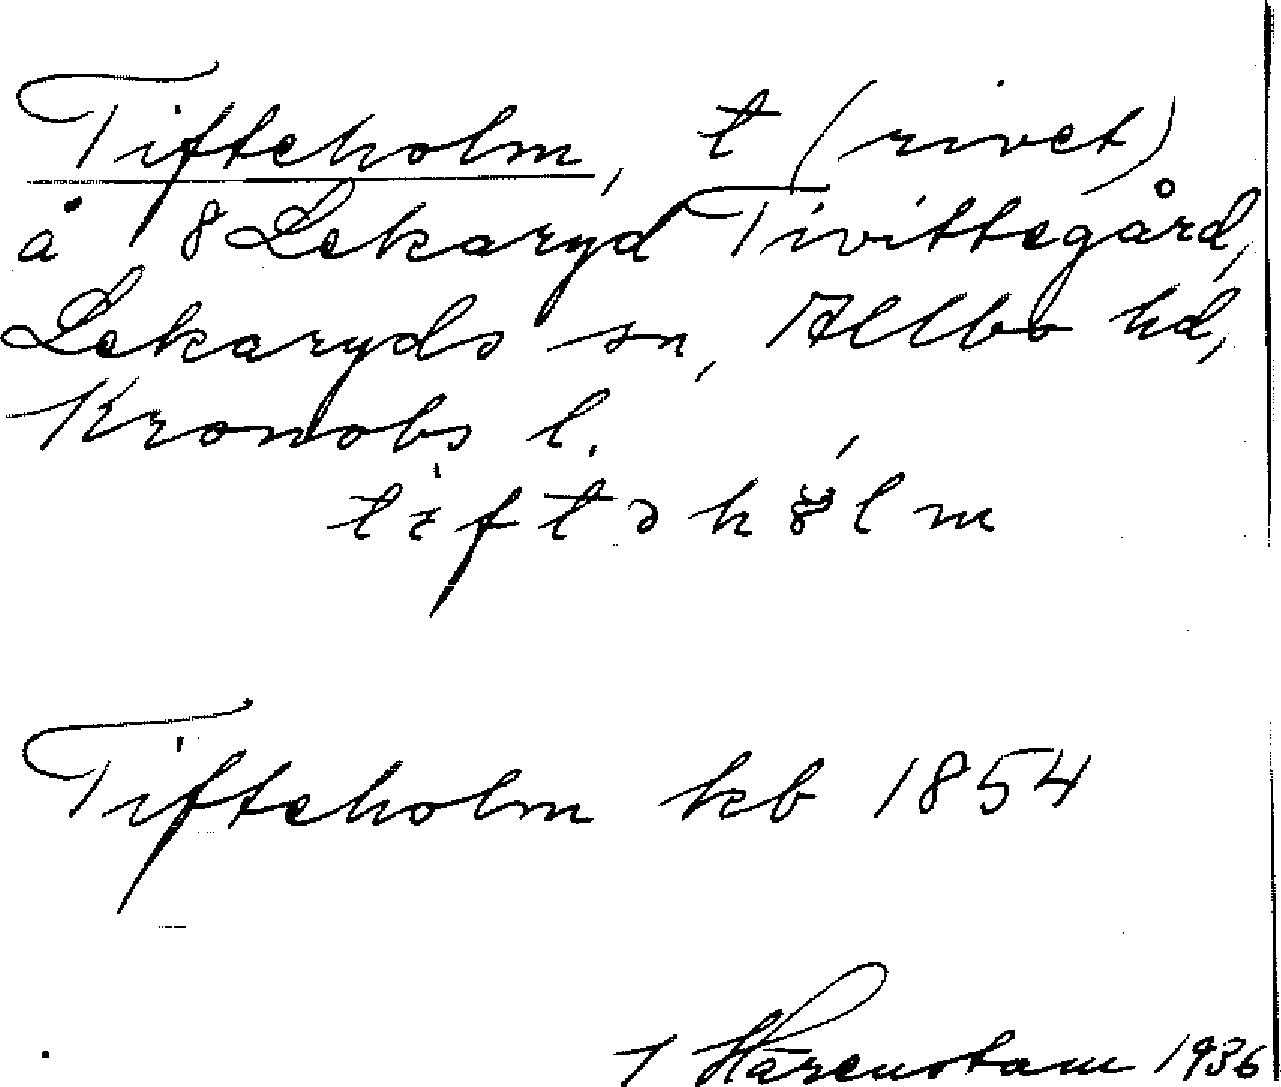 Tifteholm, t (rivet)
å 8 Lekaryd Tivittegård,
Lekaryds sn, Allbo hd,
Kronobs l.
Tifteholm kb 1854
Härenstam 1936